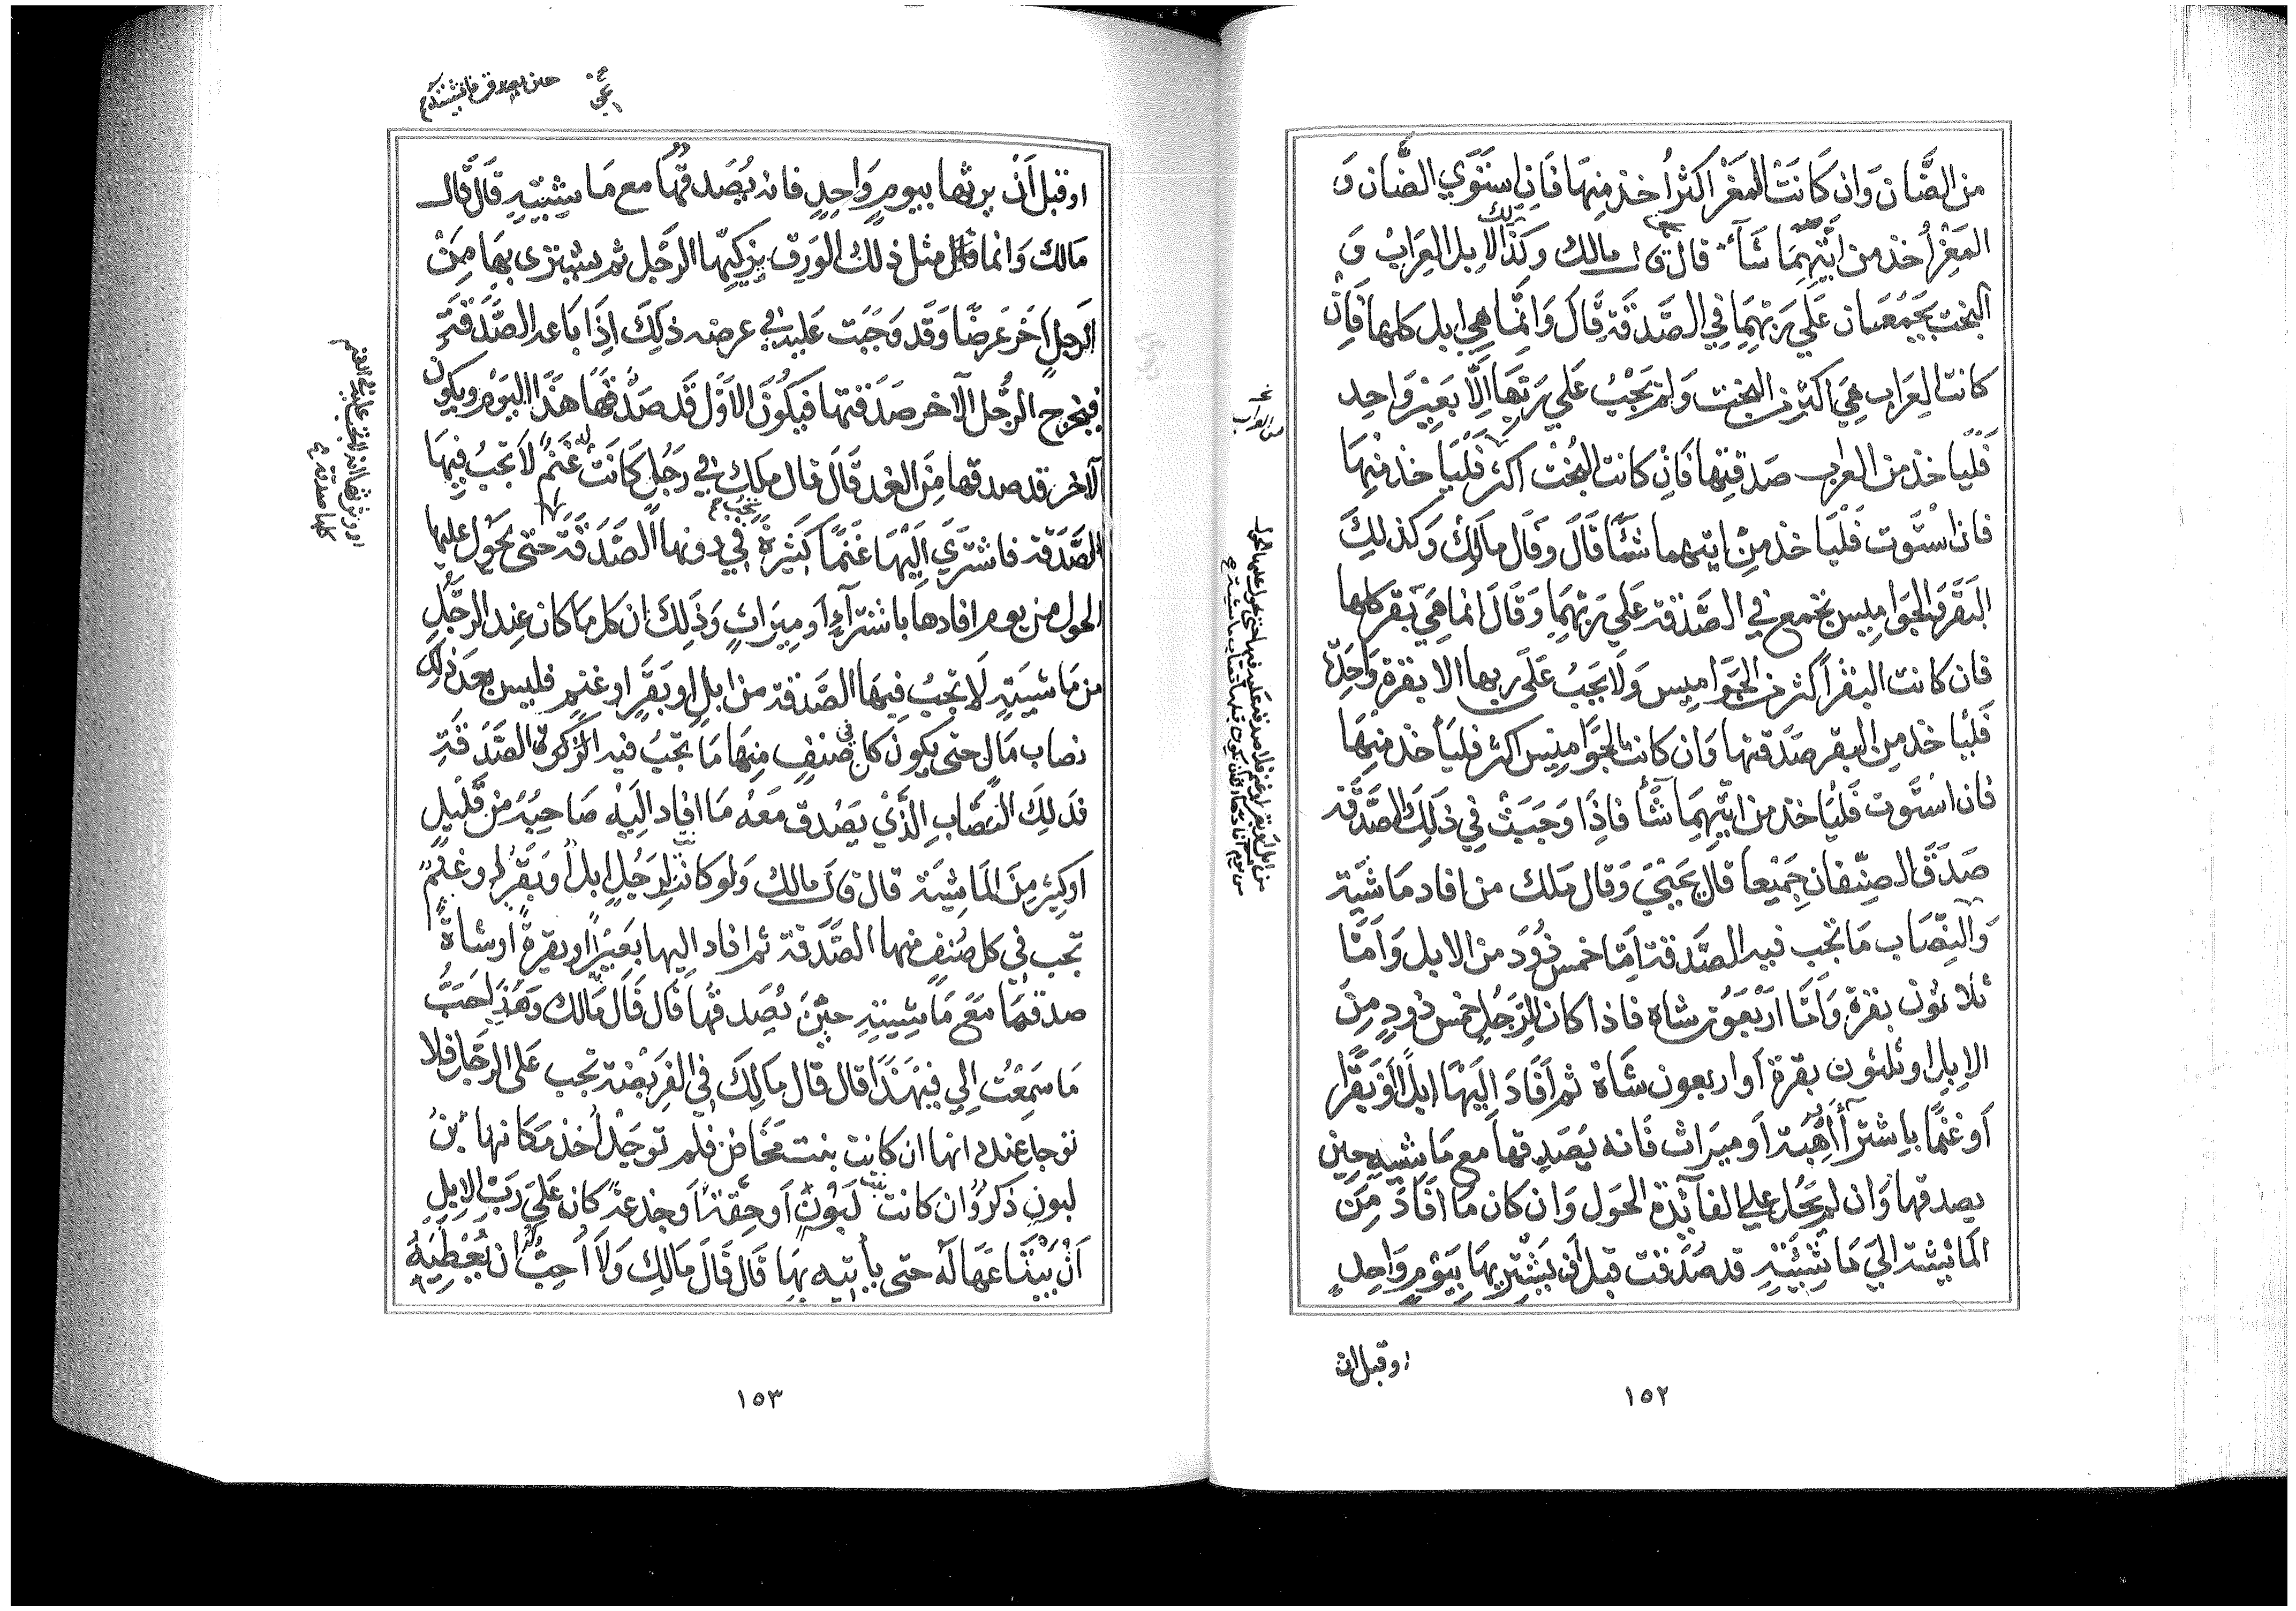 من الضان وان كانت المعز اكثر أخذ منها فان استوي الضان و
المعز أخذ من ايتهما شآء قال قال مالك وكذلك الابل العراب و
البخت يجمعان علي ربهما في الصدقة قال وانما هي ابل كلها فان
كانت العراب هي اكثر من البخت ولم يجب علي ربها الا بعير واحد
فلياخذ من العراب صدقتها فان كانت البخت اكثر فلياخذ منها
فان استوت فلياخذ من ايتهما شآء قال وقال مالك وكذلك
البقر والجواميس تجمع في الصدقة علي ربهما وقال انما هي بقر كلها
فان كانت البقر اكثر من الجواميس ولا يجب علي ربها الا بقرة واحدة
فلياخذ من البقر صدقتها وان كانت الجواميس اكثر فلياخذ منها
فان استوت فلياخذ من ايتهما شآء فاذا وجبت في ذلك الصدقة
صدق الصنفان جميعا قال يحيي وقال ملك من افاد ماشية
والنصاب ما تجب فيه الصدقة اما خمس ذود من الابل واما
ثلاثون بقرة واما اربعون شاة فاذا كان للرجل خمس ذود من
الابل او ثلثون بقرة أو اربعون شاة ثم أفاد اليها ابلا او بقرا
أو غنما باشترآء أو هبة أو ميراث فانه يصدقها مع ماشيته حين
يصدقها وان لم يحل علي الفآئدة الحول وان كان ما افاد من
الماشية الي ماشيته قد صدقت قبل أن يشتريها بيوم واحد
او قبل ان
١٥٢
من العراب
من ابل او بقر او غنم فلا صدقة عليه فيها حتى يحول عليها الحول
من يوم افادها الا ان يكون قبلها نصاب ماشية
حين يصدق ماشيته
او قبل أن يرثها بيوم واحد فانه يصدقها مع ماشيته قال قال
مالك وانما مثل ذلك الورق يزكيها الرجل ثم يشتري بها من
الرجل اخر عرضا وقد وجبت عليه في عرضه ذلك اذا باعه الصدقة
فيخرج الرجل الآخر صدقتها فيكون الاول قد صدقها هذا اليوم ويكون
الآخر قد صدقها من الغد قال قال ملك في رجل كانت له غنم لا تجب فيها
الصدقة فاشتري اليها غنما كثيرة تجب في دونها الصدقة حتى يحول عليها
الحول من يوم افادها باشترآء أو ميراث وذلك ان كل ما كان عند الرجل
من ماشية لا تجب فيها الصدقة من ابل او بقر او غنم فليس يعد ذلك
نصاب مال حتى يكون في كل صنف منها ما تجب فيه الصدقة
فذلك النصاب الذي يصدق معه ما افاد اليه صاحبه من قليل
أو كثير من الماشية قال قال مالك ولو كانت لرجل ابل أو بقر أو غنم
تجب في كل صنف منها الصدقة ثم افاد اليها بعيرا او بقرة أو شاة
صدقها مع ماشيته حين يصدقها قال قال مالك وهذا احب
ما سمعت الي في هذا قال قال مالك في الفريضة تجب على الرجل فلا
توجد عنده انها ان كانت بنت مخاض فلم توجد أخذ مكانها بن
لبون ذكر وان كانت بنت لبون أو حقة أو جذعة كان علي رب الابل
أن يبتاعها له حتى يأتيه بها قال قال مالك ولا أحب ان يعطيه
١٥٣